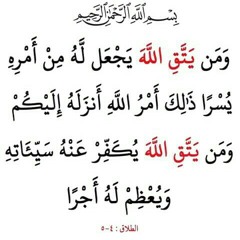 بِسْمِ اللَّهِ الرَّحْمَٰنِ الرَّحِيمِ
وَمَن يَتَّقِ اللَّهَ يَجْعَل لَّهُ مِنْ أَمْرِهِ
يُسْرًا ذَلِكَ أَمْرُ اللَّهِ أَنزَلَهُ إِلَيْكُمْ
وَمَن يَتَّقِ اللَّهَ يُكَفِّرْ عَنْهُ سَيِّئَاتِهِ
وَيُعْظِمْ لَهُ أَجْرًا
الطلاق : ٤-٥